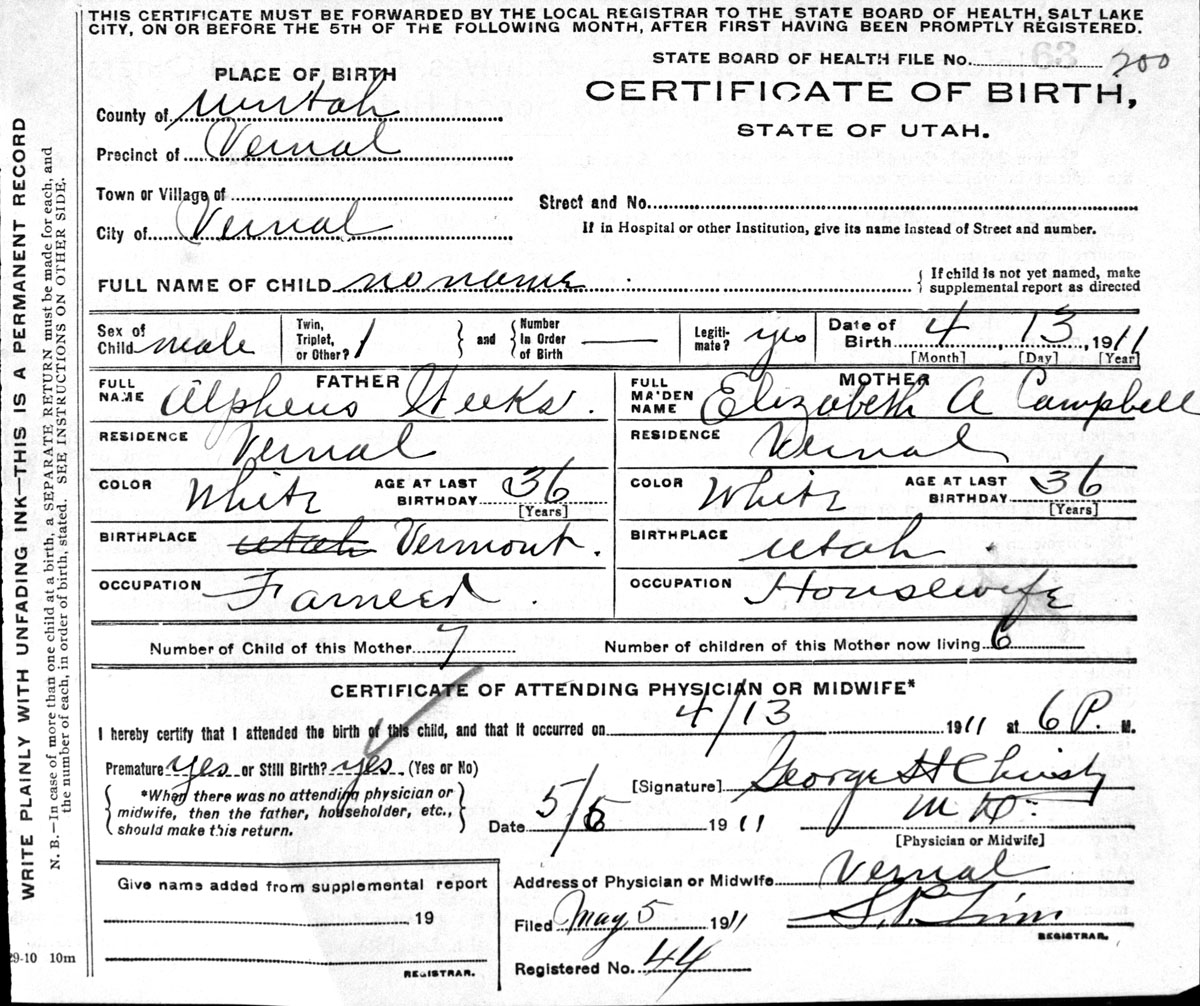 THIS CERTIFICATE MUST BE FORWARDED BY THE LOCAL REGISTRAR TO THE STATE BOARD OF HEALTH, SALT LAKE
CITY, ON OR BEFORE THE 5TH OF THE FOLLOWING MONTH, AFTER FIRST HAVING BEEN PROMPTLY REGISTERED.
STATE BOARD OF HEALTH FILE No. 163 200
PLACE OF BIRTH
CERTIFICATE OF BIRTH,
STATE OF UTAH.
County of Uintah
Precinct of Vernal
Town or Village of
City of Vernal
Street and No.
If in Hospital or other Institution, give its name instead of Street and number.
FULL NAME OF CHILD no name
If child is not yet named, make
supplemental report as directed
Sex of Child male
Twin, Triplet, or Other? 1 and Number In Order of Birth
Legitimate? yes
Date of Birth 4, 13, 1911
[Month] [Day] [Year]
FATHER
FULL NAME Alpheus Weeks.
RESIDENCE Vernal
COLOR White AGE AT LAST BIRTHDAY 36
[Years]
BIRTHPLACE Utah Vermont.
OCCUPATION Farmeer.
MOTHER
FULL MAIDEN NAME Elizabeth A Campbell
RESIDENCE Vernal
COLOR White AGE AT LAST BIRTHDAY 36
[Years]
BIRTHPLACE Utah.
OCCUPATION Housewife
Number of Child of this Mother 7 Number of children of this Mother now living 6
CERTIFICATE OF ATTENDING PHYSICIAN OR MIDWIFE*
I hereby certify that I attended the birth of this child, and that it occurred on 4/13 1911 at 6 P. M.
Premature yes or Still Birth? yes. (Yes or No)
*When there was no attending physician or
midwife, then the father, householder, etc.,
should make this return.
[Signature] George H Christy
M D.
[Physician or Midwife]
Date 5/5 1911
Give name added from supplemental report
19
REGISTRAR.
Address of Physician or Midwife Vernal
Filed May 5 1911
REGISTRAR.
Registered No. 44
29-10 10m
WRITE PLAINLY WITH UNFADING INK—THIS IS A PERMANENT RECORD
N. B.—In case of more than one child at a birth, a SEPARATE RETURN must be made for each, and
the number of each, in order of birth, stated. SEE INSTRUCTIONS ON OTHER SIDE.